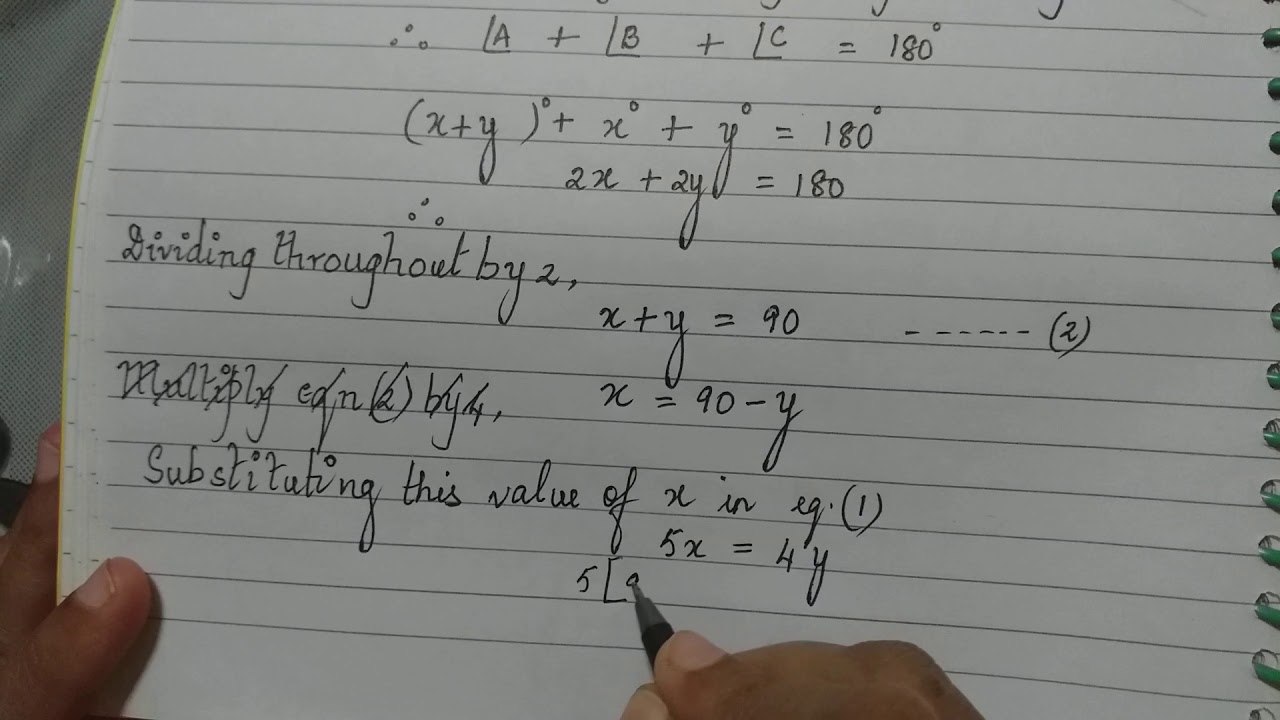 ∴ ∠A + ∠B + ∠C = 180°
(x+y)° + x° + y° = 180°
2x + 2y = 180
∴
Dividing throughout by 2,
x + y = 90 ------ (2)
Multiply eqn (2) by 4, x = 90 - y
Substituting this value of x in eq. (1)
5x = 4y
5[9